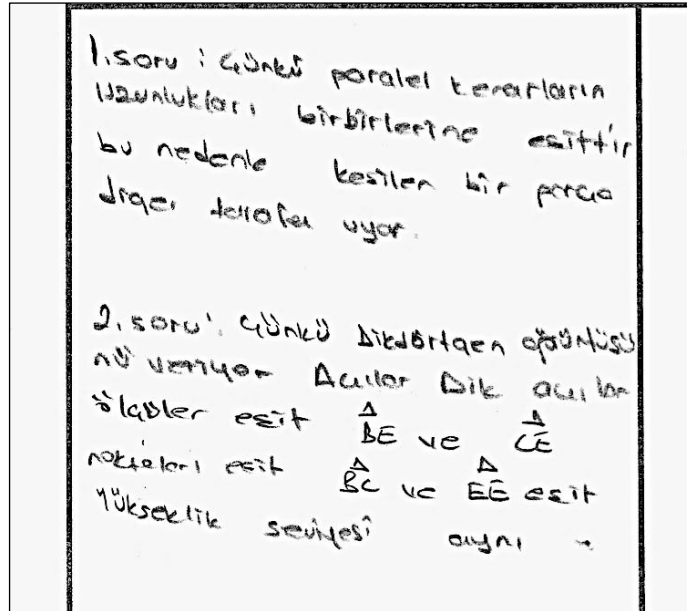 1. soru : Çünkü paralel kenarların
uzunlukları birbirlerine eşittir
bu nedenle kesilen bir parça
diğer tarafa uyar.
2. soru : Çünkü Dikdörtgen görüntüsü
nü veriyor Açılar Dik açılar
ölçüler eşit BE ve CE
noktaları eşit BC ve EE eşit
Yükseklik seviyesi aynı